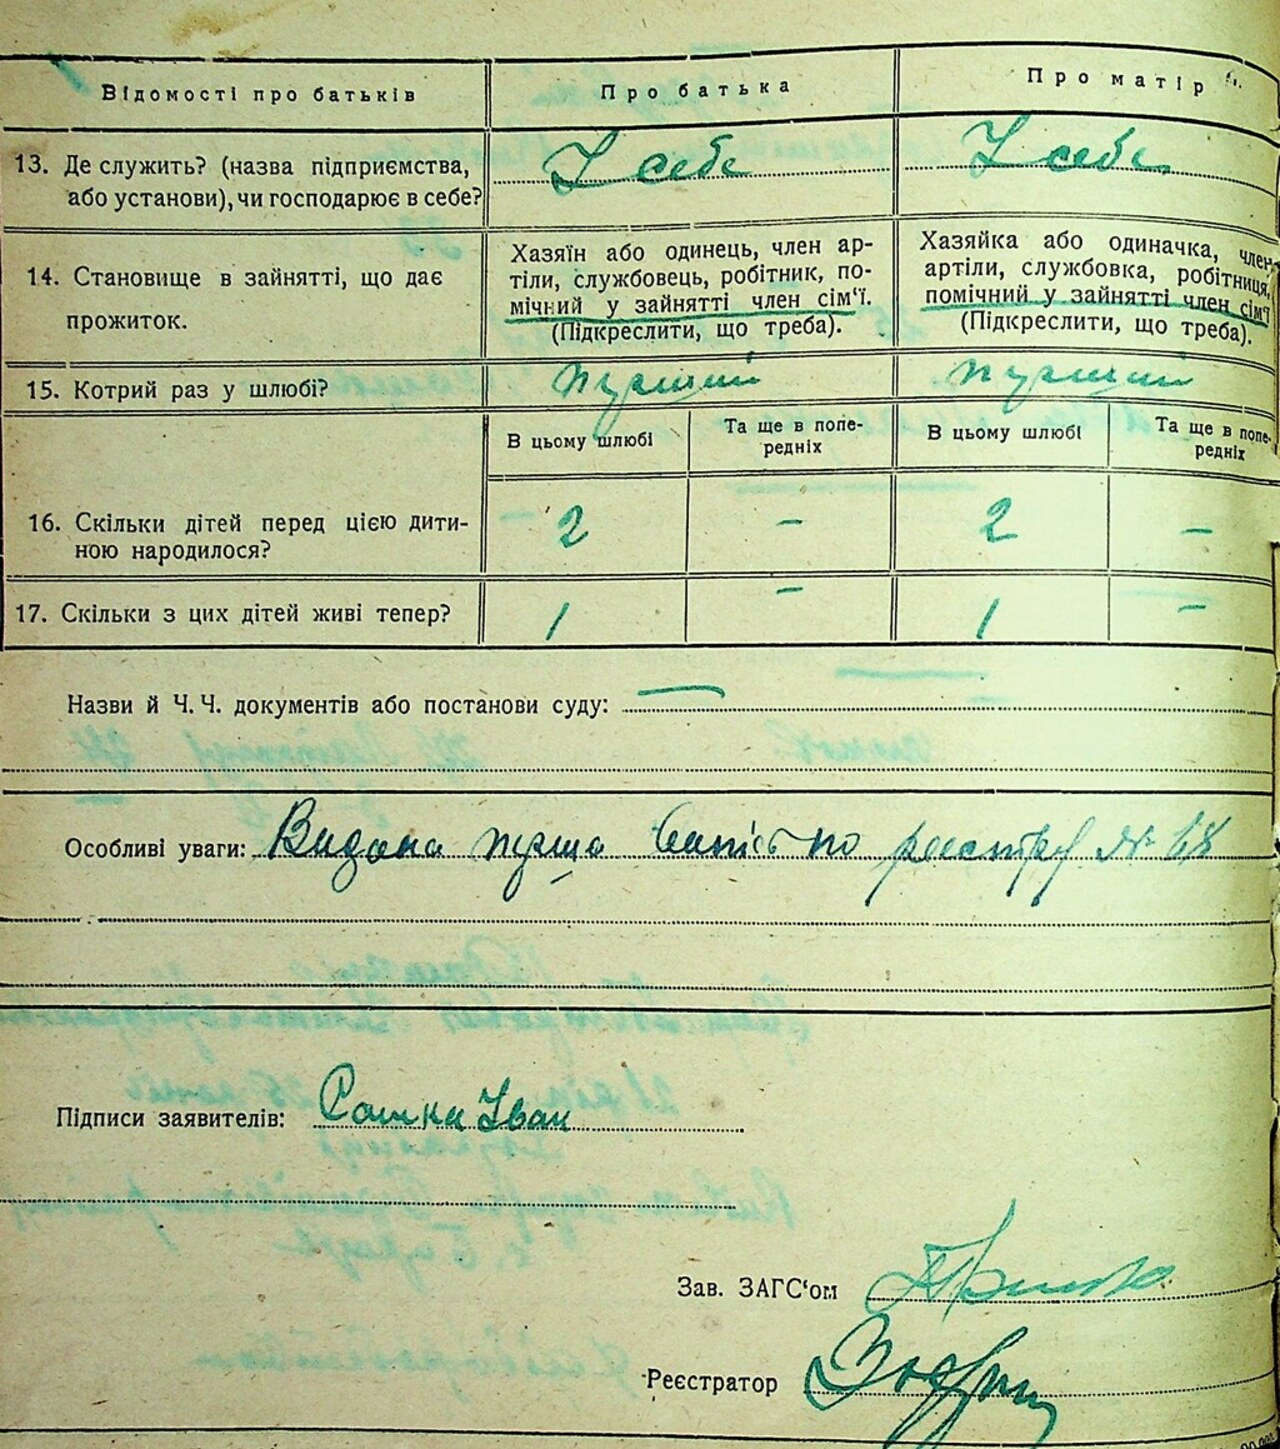 Відомості про батьків
Про батька
Про матір
13. Де служить? (назва підприємства,
або установи), чи господарює в себе?
У себе
У себе
14. Становище в зайнятті, що дає
прожиток.
Хазяїн або одинець, член ар-
тіли, службовець, робітник, по-
мічний у зайнятті член сім'ї.
(Підкреслити, що треба).
Хазяйка або одиначка, член
артіли, службовка, робітниця,
помічний у зайнятті член сім'ї
(Підкреслити, що треба).
15. Котрий раз у шлюбі?
перший
перший
В цьому шлюбі
Та ще в попе-
редніх
В цьому шлюбі
Та ще в попе-
редніх
16. Скільки дітей перед цією дити-
ною народилося?
2
–
2
–
17. Скільки з цих дітей живі тепер?
1
–
1
–
Назви й Ч. Ч. документів або постанови суду: —
Особливі уваги: Видана перша по реестру № 68
Підписи заявителів: Іван
Зав. ЗАГС'ом
Реєстратор